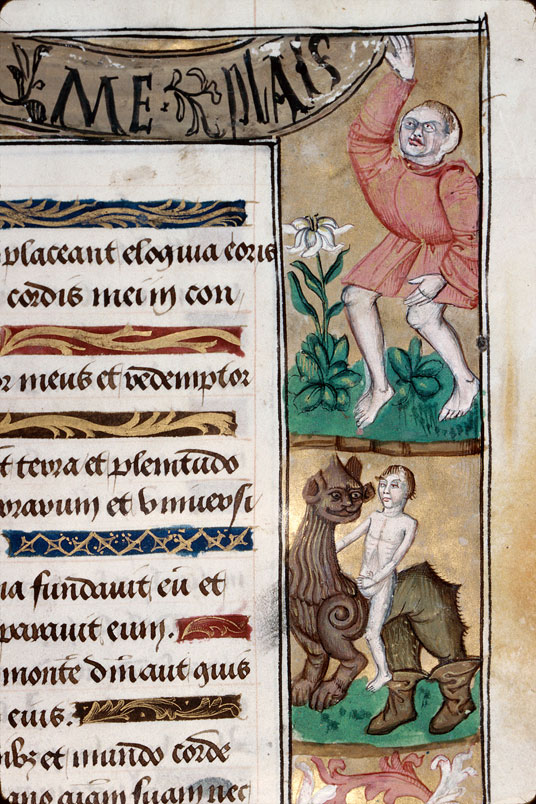 ME PLAIS
placeant eloquia eoris
cordis mei in con
r meus et redemptor
t terra et plenitudo
rarum et vniuersi
ia fundauit eū et
parauit eum.
monte dm̄ aut quis
eius.
ibz et mundo corde
ano aīam suam nec